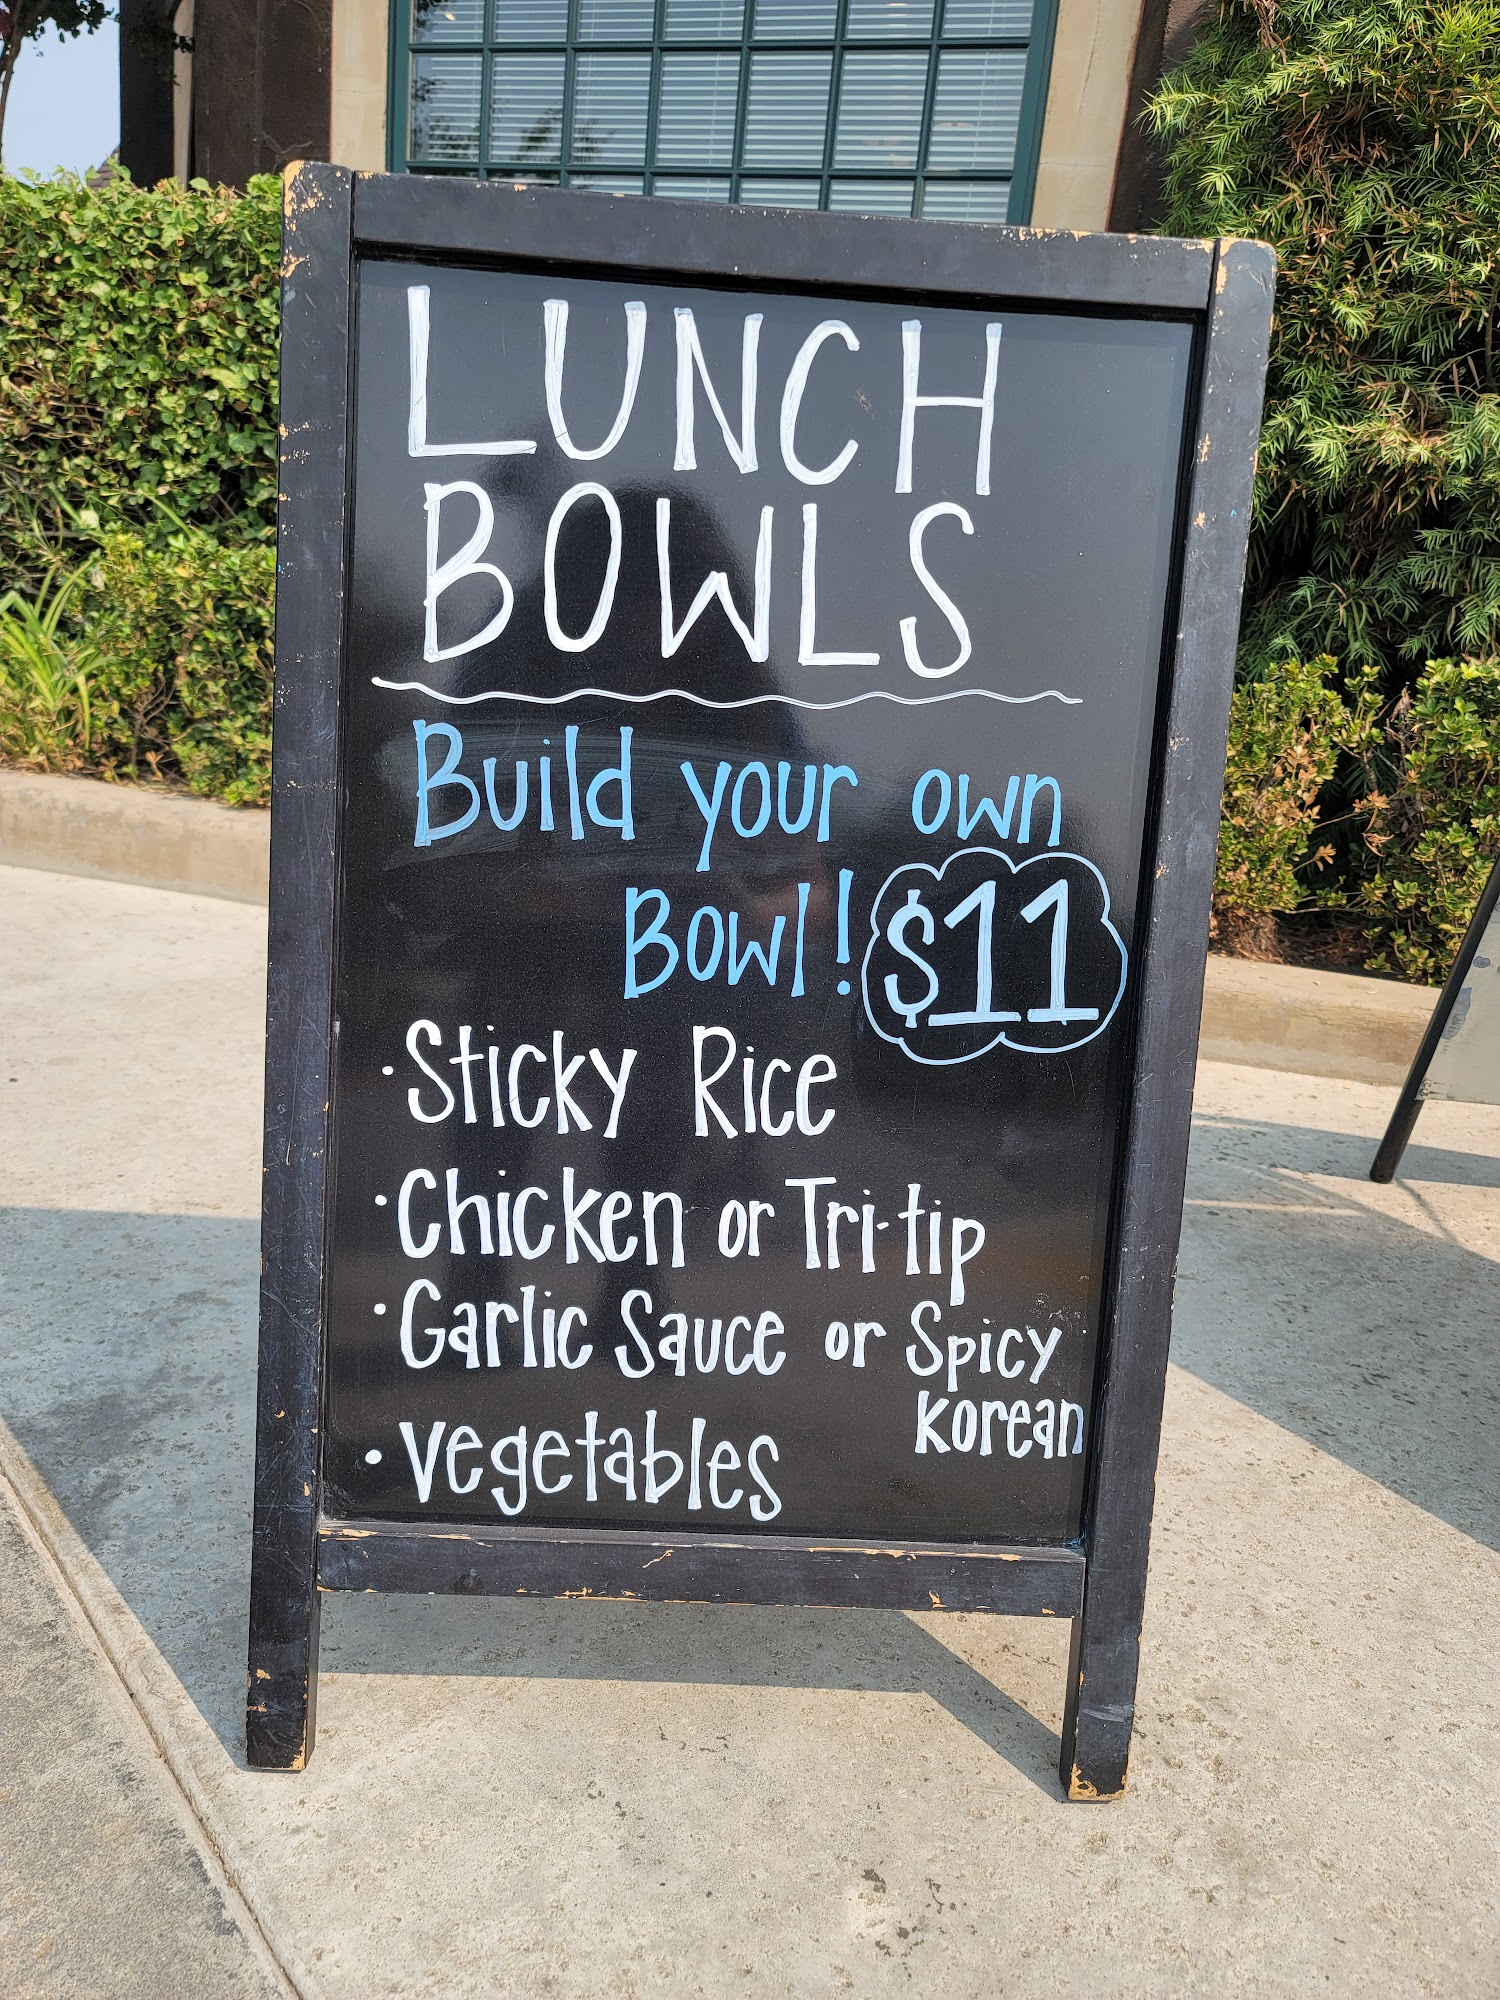 LUNCH
BOWLS
Build your own
Bowl! $11
· Sticky Rice
· Chicken or Tri-tip
· Garlic Sauce or Spicy
Korean
· vegetables